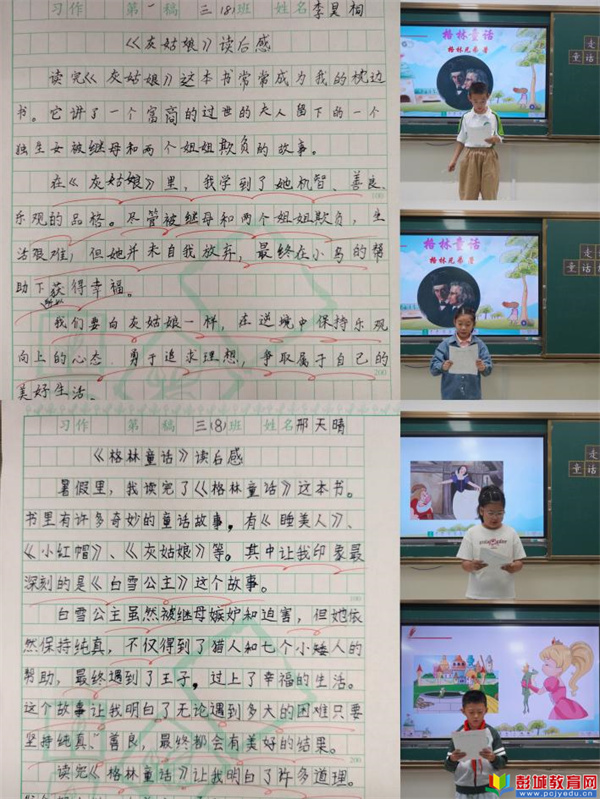 习作 第一稿 三(8)班 姓名李昊桐
《灰姑娘》读后感
读完《灰姑娘》这本书常常成为我的枕边
书。它讲了一个富商的过世的夫人留下的一个
独生女被继母和两个姐姐欺负的故事。
在《灰姑娘》里，我学到了她机智、善良、
乐观的品格。尽管被继母和两个姐姐欺负，生
活艰难，但她并未自我放弃，最终在小鸟的帮
助下获得幸福。
我们要向灰姑娘一样，在逆境中保持乐观
向上的心态，勇于追求理想，争取属于自己的
美好生活。
100
200
习作 第一稿 三(8)班 姓名邢天晴
《格林童话》读后感
暑假里，我读完了《格林童话》这本书。
书里有许多奇妙的童话故事，有《睡美人》、
《小红帽》、《灰姑娘》等。其中让我印象最
深刻的是《白雪公主》这个故事。
100
白雪公主虽然被继母嫉妒和迫害，但她依
然保持纯真，不仅得到了猎人和七个小矮人的
帮助，最终遇到了王子，过上了幸福的生活。
这个故事让我明白了无论遇到多大的困难只要
坚持纯真、善良，最终都会有美好的结果。
200
读完《格林童话》让我明白了许多道理。
格林童话
格林兄弟 著
走
童话
格林童话
格林兄弟 著
走
童话
走
童话
彭城教育网
www.pcjyedu.cn